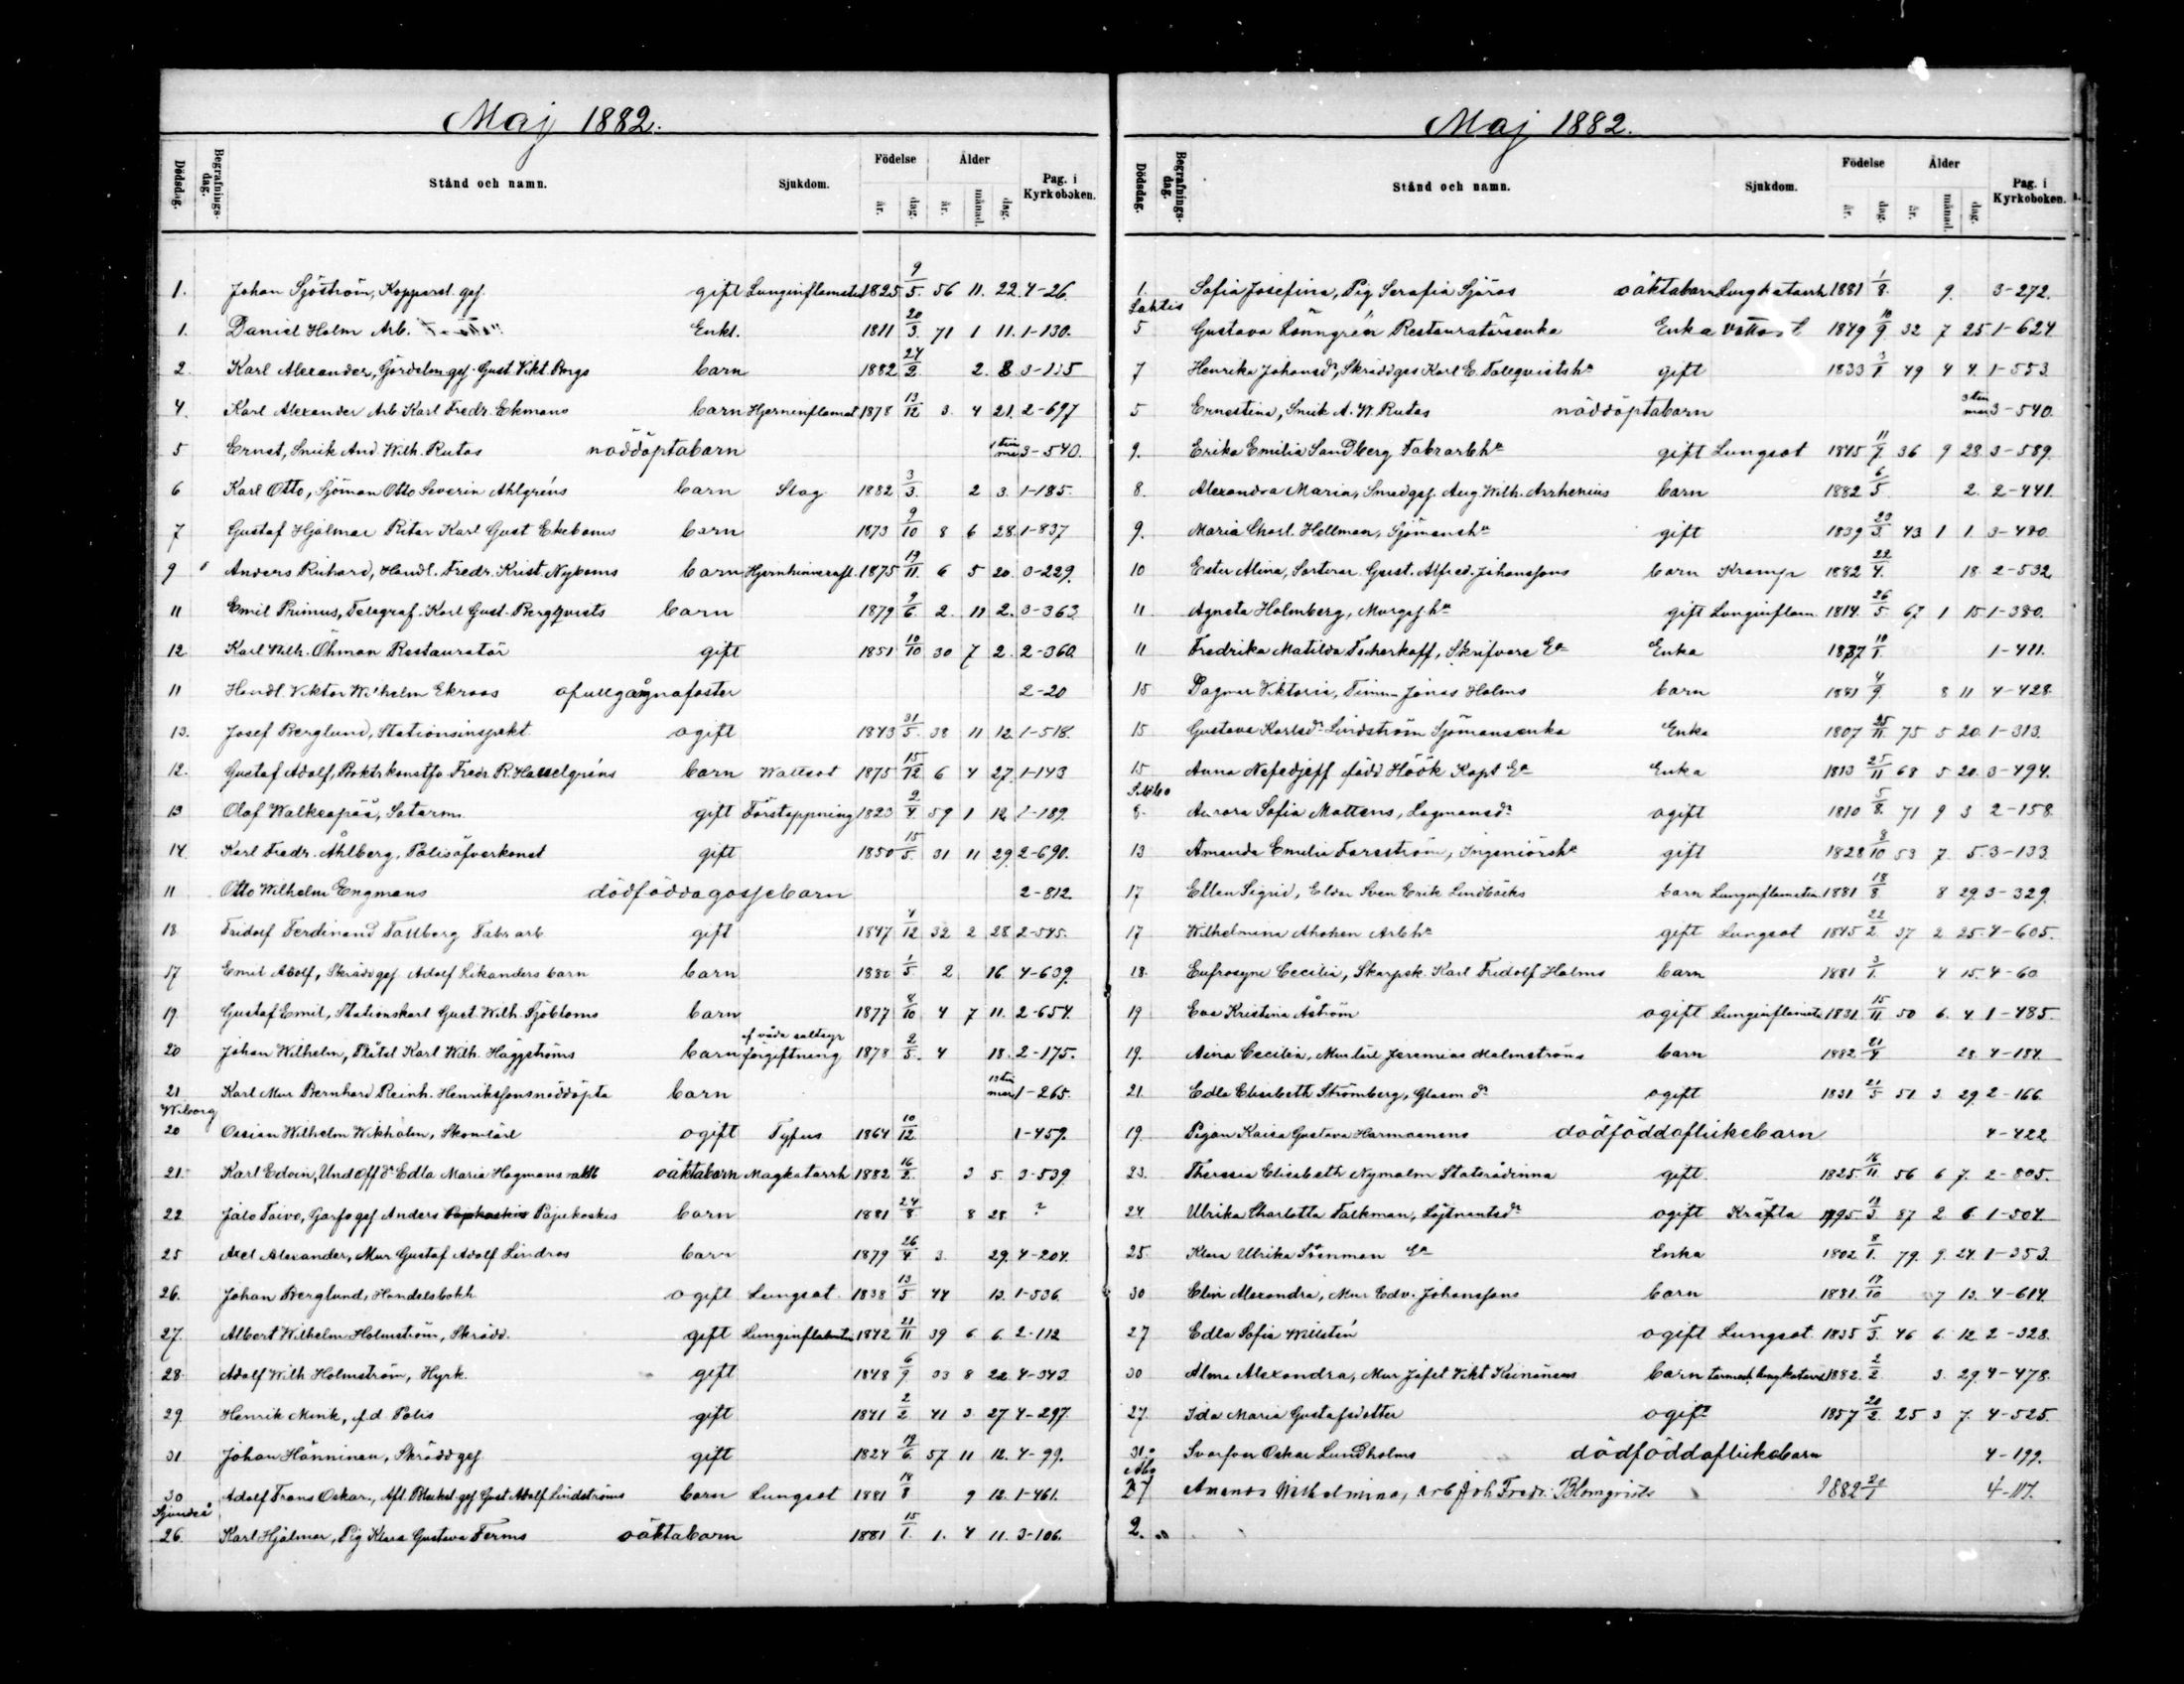 Maj 1882.
Dödsdag. Begrafningsdag. Stånd och namn. Sjukdom. Födelse år. dag. Ålder år. månad. dag. Pag. i Kyrkoboken.
1. Johan Sjöström, Kopparsl. gej. gift Lunginflamation 1825 9/5. 56 11. 22. 4-26.
1. Daniel Holm Arb. Enkl. 1811 20/3. 71 1 11. 1-130.
2. Karl Alexander, Gördelm. gej. Gust. Vikt. Borgs barn 1882 24/2. 2. 8 3-115
4. Karl Alexander Arb. Karl Fredr. Ekmans barn Hjerninflamat 1878 13/12 3. 4 21. 2-697
5 Ernst, Snick And. Wilh. Rutas nöddöptabarn 1 tim 3-540.
6 Karl Otto, Sjöman Otto Severin Ahlgréns barn Slag 1882 3/3. 2 3. 1-185.
7 Gustaf Hjalmar Ritar Karl Gust Ekeboms barn 1873 9/10 8 6 28. 1-837
9 Anders Richard, Handl. Fredr. Krist. Nyboms barn 1875 19/11. 6 5 20. 0-229.
11 Emil Primus, Telegraf. Karl Gust. Bergqvists barn 1879 9/6. 2. 11 2. 3-363
12 Karl Wilh. Öhman Restauratör gift 1851 10/10 30 7 2. 2-360.
11 Handl. Viktor Wilhelm Ekroos ofullgångnafoster 2-20
13. Josef Berglund, Stationsinspekt. ogift 1843 31/5. 38 11 12. 1-518.
12. Gustaf Adolf, Boktr.konstfv Fredr R. Hasselgréns barn Wattsot 1875 15/12 6 4 27. 1-143
13 Olof Walkeapää, Sotarm. gift Förstoppning 1823 2/4 59 1 12. 1-189.
14. Karl Fredr. Åhlberg, Polisöfverkonst gift 1850 15/5. 31 11 29. 2-690.
11 Otto Wilhelm Engmans dödföddagossebarn 2-812.
18 Fridolf Ferdinand Tallberg Fabr arb gift 1847 4/12 32 2 28. 2-545.
17 Emil Adolf, Skrädd gej Adolf Likanders barn barn 1880 1/5. 2 16. 4-639.
19 Gustaf Emil, Stationskarl Gust. Wilh. Sjöbloms barn 1877 8/10 4 7 11. 2-654.
20 Johan Wilhelm, Karl Wilh. Häggströms barn af våda saltsyr förgiftning 1878 2/5. 4 18. 2-175.
21 Karl Mur Bernhard Reinh. Henrikssonsnöddöpta barn 13 tim mar 1-265.
Wiborg
20 Ossian Wilhelm Wikholm, Skomlärl ogift Tyfus 1864 10/12 1-459.
21. Karl Edvin, Und off dr Edla Maria Hagmans oäktabarn Magkatarrh 1882 16/2. 3 5. 3-539
22 Jalo Toivo, Garfv gej Anders Pajukoskis barn 1881 24/8 8 28 ?
25 Axel Alexander, Mur Gustaf Adolf Lindros barn 1879 26/4 3. 29. 4-204.
26. Johan Berglund, Handelsbokh. ogift Lungsot 1838 13/5 44 13. 1-536.
27. Albert Wilhelm Holmström, Skrädd. gift Lunginflamation 1842 21/11 39 6 6. 2-112
28. Adolf Wilh Holmström, Hyrk. gift 1848 6/9 33 8 22. 4-343.
29. Henrik Mink, f.d. Polis gift 1841 2/2. 41 3. 27. 4-297.
31 Johan Hänninen, Skrädd gej gift 1824 19/6. 57 11 12. 4-99.
30 Adolf Frans Oskar, Afl. gej Gust Adolf Lindströms barn Lungsot 1881 18/8 9 12. 1-461.
Sjundeå
26. Karl Hjalmar, Pig Klara Gustava Ferms oäktabarn 1881 15/1. 1. 4 11. 3-106.
Maj 1882.
Dödsdag. Begrafningsdag. Stånd och namn. Sjukdom. Födelse år. dag. Ålder år. månad. dag. Pag. i Kyrkoboken.
1. Sofia Josefina, Pig Serafia Sjöros oäktabarn Lungkatarrh 1881 1/8. 9. 3-272.
Lahtis
5 Gustava Lönngrén Restauratörsenka Enka Vattsot 1849 10/9 32 7 25 1-624
7 Henrika Johansdr, Skräddges Karl E. Tallqvists hu gift 1833 3/1 49 4 4. 1-553.
5 Ernestina, Snick A. W. Rutas nöddöptabarn 3 tim mar 3-540.
9. Erika Emilia Sandberg Fabrarbhu gift Lungsot 1845 11/7. 36 9 28. 3-589.
8. Alexandra Maria, Smedgej. Aug. Wilh. Arrhenius barn 1882 6/5 2. 2-441.
9. Maria Charl. Hellman, Sjömanshu gift 1839 23/3. 43 1 1. 3-480
10 Ester Alina, Sorterar. Gust. Alfred. Johanssons barn Kramp 1882 22/4. 18. 2-532
11 Agneta Holmberg, Murgejhu gift Lunginflam. 1814. 26/5 67 1 15 1-380.
11 Fredrika Matilda Tscherkoff, Skrifvare Ea Enka 1837 10/1. 1-411.
15 Dagmar Viktoria, Timm Jonas Holms barn 1881 4/9. 8 11 4-428.
15 Gustava Karlsdr Lindström Sjömansenka Enka 1807 25/11. 75 5 20. 1-313.
15 Anna Nefedjeff född Höök Kapt Ea Enka 1813 25/11 68 5 20. 3-494.
8. Aurora Sofia Mattens, Lagmansdr ogift 1810 5/8. 71 9 3 2-158.
13 Amanda Emelie Forsström, Ingeniörshu gift 1828 8/10 53 7. 5. 3-133
17 Ellen Sigrid, Eldar Sven Erik Lindbäcks barn Lunginflamation 1881 18/8 8 29. 3-329.
17 Wilhelmina Ahonen Arbhu gift Lungsot 1845 22/2 37 2 25. 4-605.
18. Eufrosyne Cecilia, Skarpsk. Karl Fridolf Holms barn 1881 3/1. 4 15. 4-60
19 Eva Kristina Åström ogift Lunginflamat 1831. 15/11 50 6. 4 1-485.
19. Aina Cecilia, Murlärl Jeremias Malmströms barn 1882. 21/4 28. 4-184.
21. Edla Elisabeth Strömberg, Glasm dr ogift 1831 21/5 51 3. 29. 2-166.
19. Pigan Kaisa Gustava Harmaanens dödföddaflickebarn 4-422
23. Theresia Elisabeth Nymalm Statsrådinna gift 1825. 16/11 56 6 7. 2-805.
24. Ulrika Charlotta Falkman, Löjtnantsdr ogift Kräfta 1795 13/3 87 2 6. 1-504.
25. Klara Ulrika Ea Enka 1802. 8/1. 79. 9. 24. 1-353.
30 Elin Alexandra, Mur Edv. Johanssons barn 1881. 17/10 7 13. 4-614.
27 Edla Sofia Willstén ogift Lungsot 1835 5/3. 46 6. 12 2-328.
30 Alma Alexandra, Mur Jafet Vikt Keinänens barn tarmoch lungkatarrh 1882. 2/2 3. 29. 4-478.
27. Ida Maria Gustafsdotter ogift 1857 20/2. 25 3 7. 4-525.
31. Svarfvar Oskar Lundholms dödföddaflickebarn 4-199.
Åbo
27 Amanda Wilhelmina, arb Joh Fredr. Blomqvists 1882 4-117.
2.